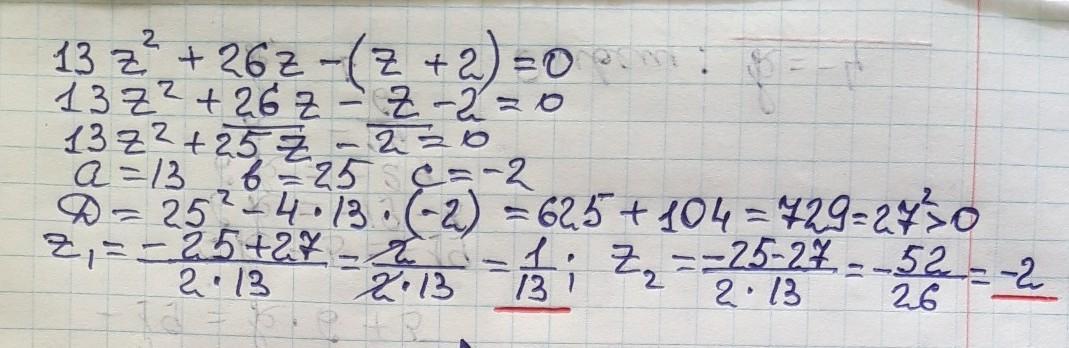 13z² + 26z - (z + 2) = 0
13z² + 26z - z - 2 = 0
13z² + 25z - 2 = 0
a = 13 b = 25 c = -2
D = 25² - 4 · 13 · (-2) = 625 + 104 = 729 = 27² > 0
z₁ = (-25+27)/(2 · 13) = 2/(2 · 13) = 1/13; z₂ = (-25-27)/(2 · 13) = -52/26 = -2